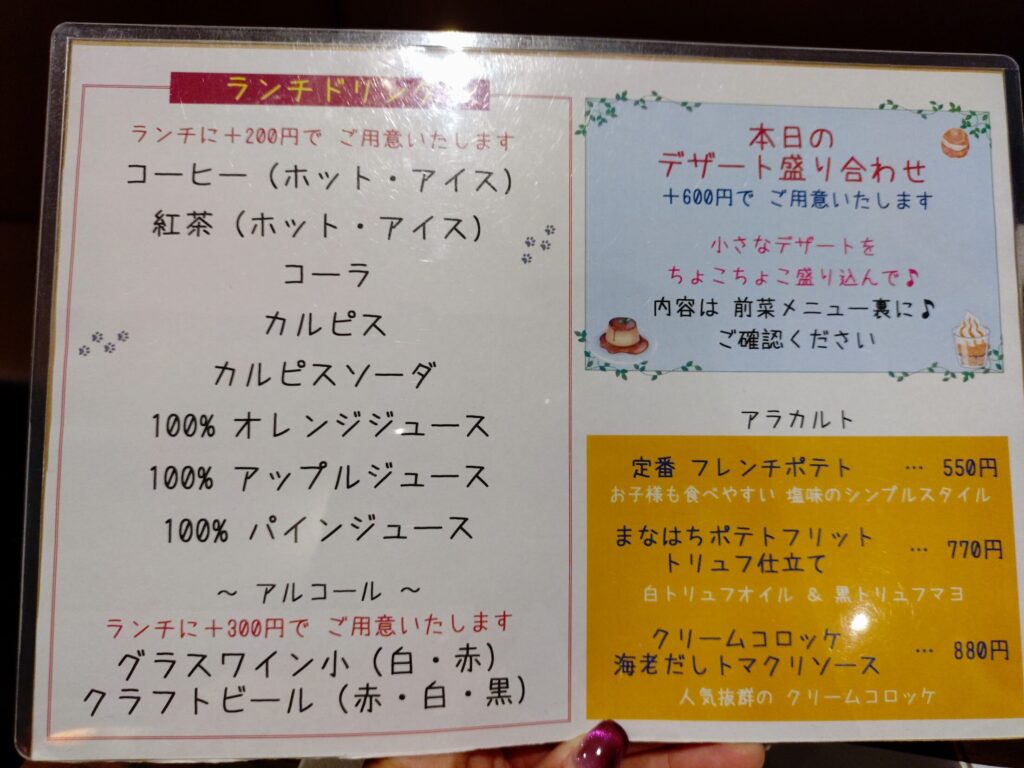 ランチドリンク
ランチに＋200円で ご用意いたします
コーヒー（ホット・アイス）
紅茶（ホット・アイス）
コーラ
カルピス
カルピスソーダ
100% オレンジジュース
100% アップルジュース
100% パインジュース
～ アルコール ～
ランチに＋300円で ご用意いたします
グラスワイン小（白・赤）
クラフトビール（赤・白・黒）
本日の
デザート盛り合わせ
＋600円で ご用意いたします
小さなデザートを
ちょこちょこ盛り込んで♪
内容は 前菜メニュー裏に♪
ご確認ください
アラカルト
定番 フレンチポテト … 550円
お子様も食べやすい 塩味のシンプルスタイル
まなはちポテトフリット
トリュフ仕立て … 770円
白トリュフオイル ＆ 黒トリュフマヨ
クリームコロッケ
海老だしトマクリソース … 880円
人気抜群の クリームコロッケ